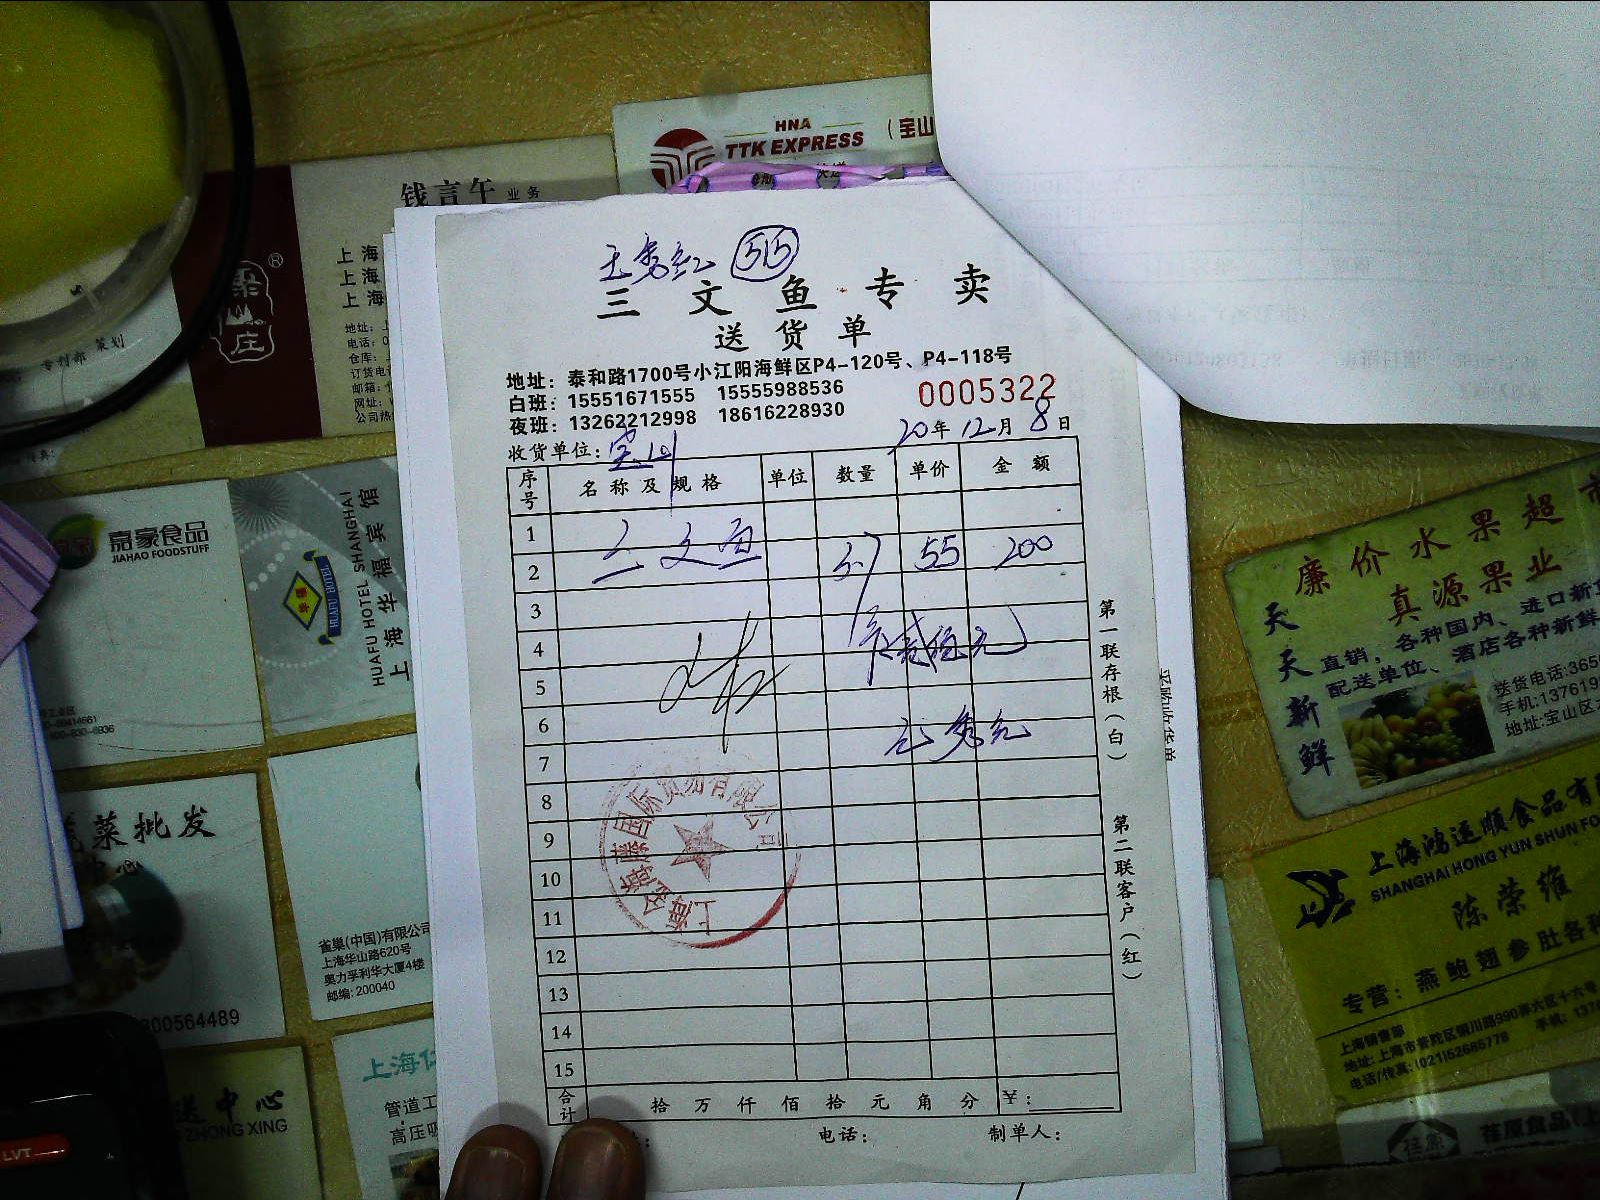 HNA
TTK EXPRESS
（宝山
钱言午 业务
®
上海
上海
上海
专刊部 策划
515
三文鱼专卖
送货单
地址：泰和路1700号小江阳海鲜区P4-120号、P4-118号
白班：15551671555 15555988536
夜班：13262212998 18616228930
0005322
20年12月8日
收货单位：
序号 名称及规格 单位 数量 单价 金额
1
三文鱼 3.7 55 200
2
3
4
5
6
7
8
9
10
11
12
13
14
15
合计 拾万仟佰拾元角分 ￥：
电话： 制单人：
第一联存根（白）
第二联客户（红）
上海金海藤国际贸易有限公司
嘉豪食品
JIAHAO FOODSTUFF
HUAFU HOTEL
HUAFU HOTEL SHANGHAI
上海华福宾馆
菜批发
雀巢(中国)有限公司
上海华山路620号
奥力孚利华大厦4楼
邮编：200040
00564489
送中心
ZHONG XING
管道工
高压吸
LVT
廉价水果超市
真源果业
天天新鲜
直销，各种国内、进口新
配送单位、酒店各种新鲜
送货电话:365
手机:137619
地址:宝山区
上海鸿运顺食品有
SHANGHAI HONG YUN SHUN FO
陈荣维
专营：燕鲍翅参肚各种
上海销售部
地址:上海市普陀区铜川路990弄六区十六号
电话/传真:(021)52685778
手机：137
荏原食品(上